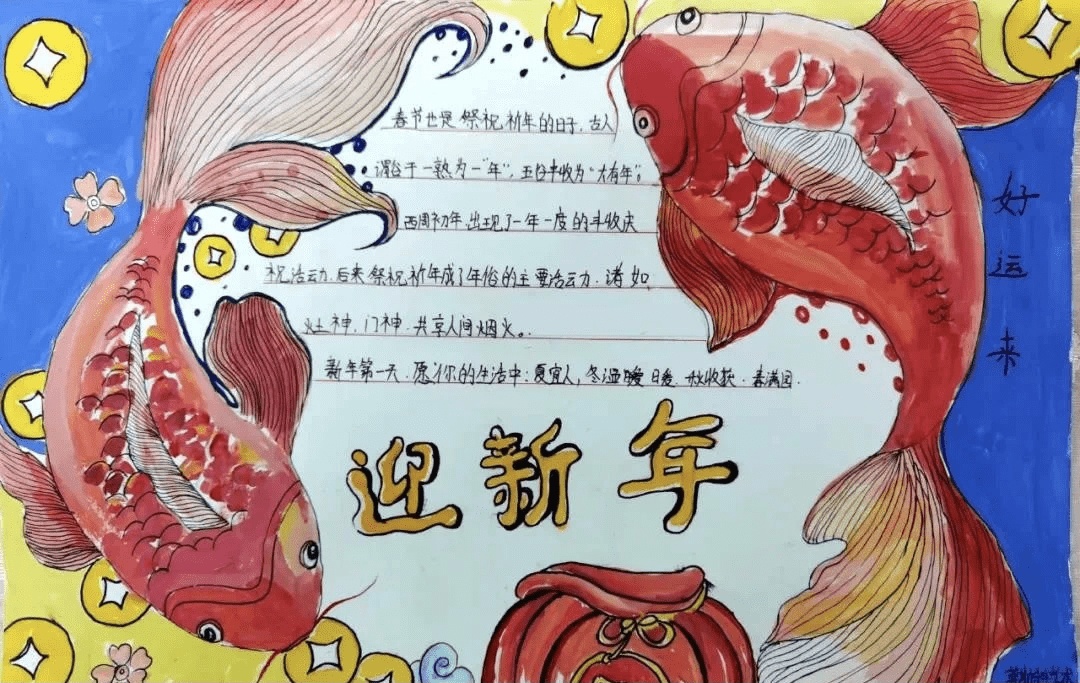 春节也是祭祝祈年的日子,古人
谓谷子一熟为一"年",五谷丰收为"大有年"。
西周初年,出现了一年一度的丰收庆
祝活动.后来,祭祝祈年成了年俗的主要活动.诸如
灶神、门神.共享人间烟火。
新年第一天.愿你的生活中:夏宜人,冬温暖 日暖.秋收获.春满园.
迎新年
好运来